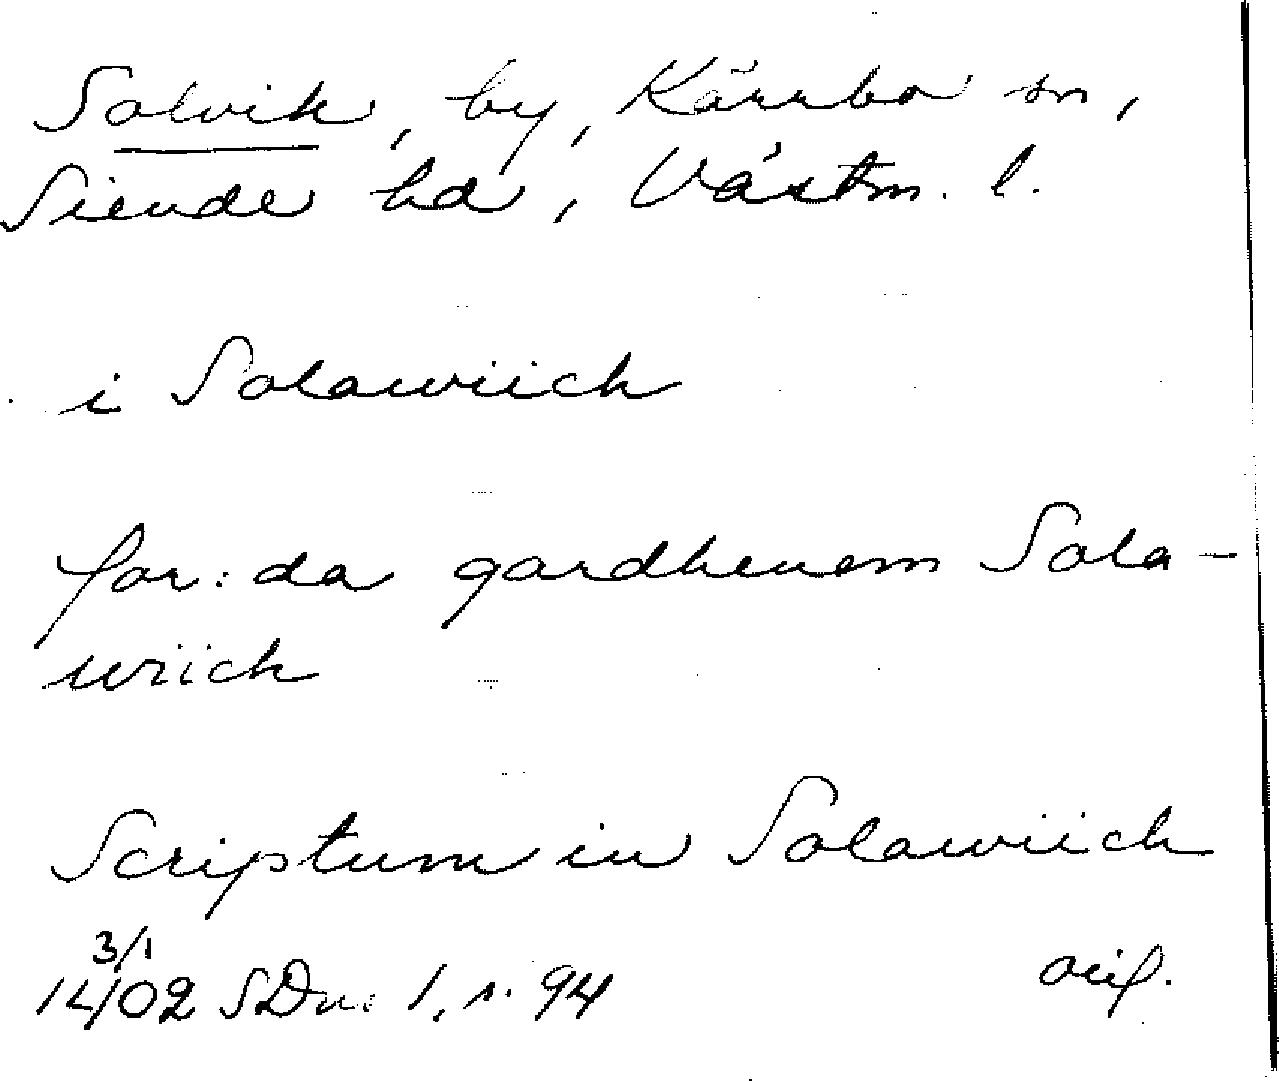 Solvik, by, Kärrbo sn,
Siende hd, Västm. l.
i Solawiich
for:da gardhenom Sola-
wiich
Scriptum in Solawiich
3/1
1402 SDns 1, s. 94 orig.